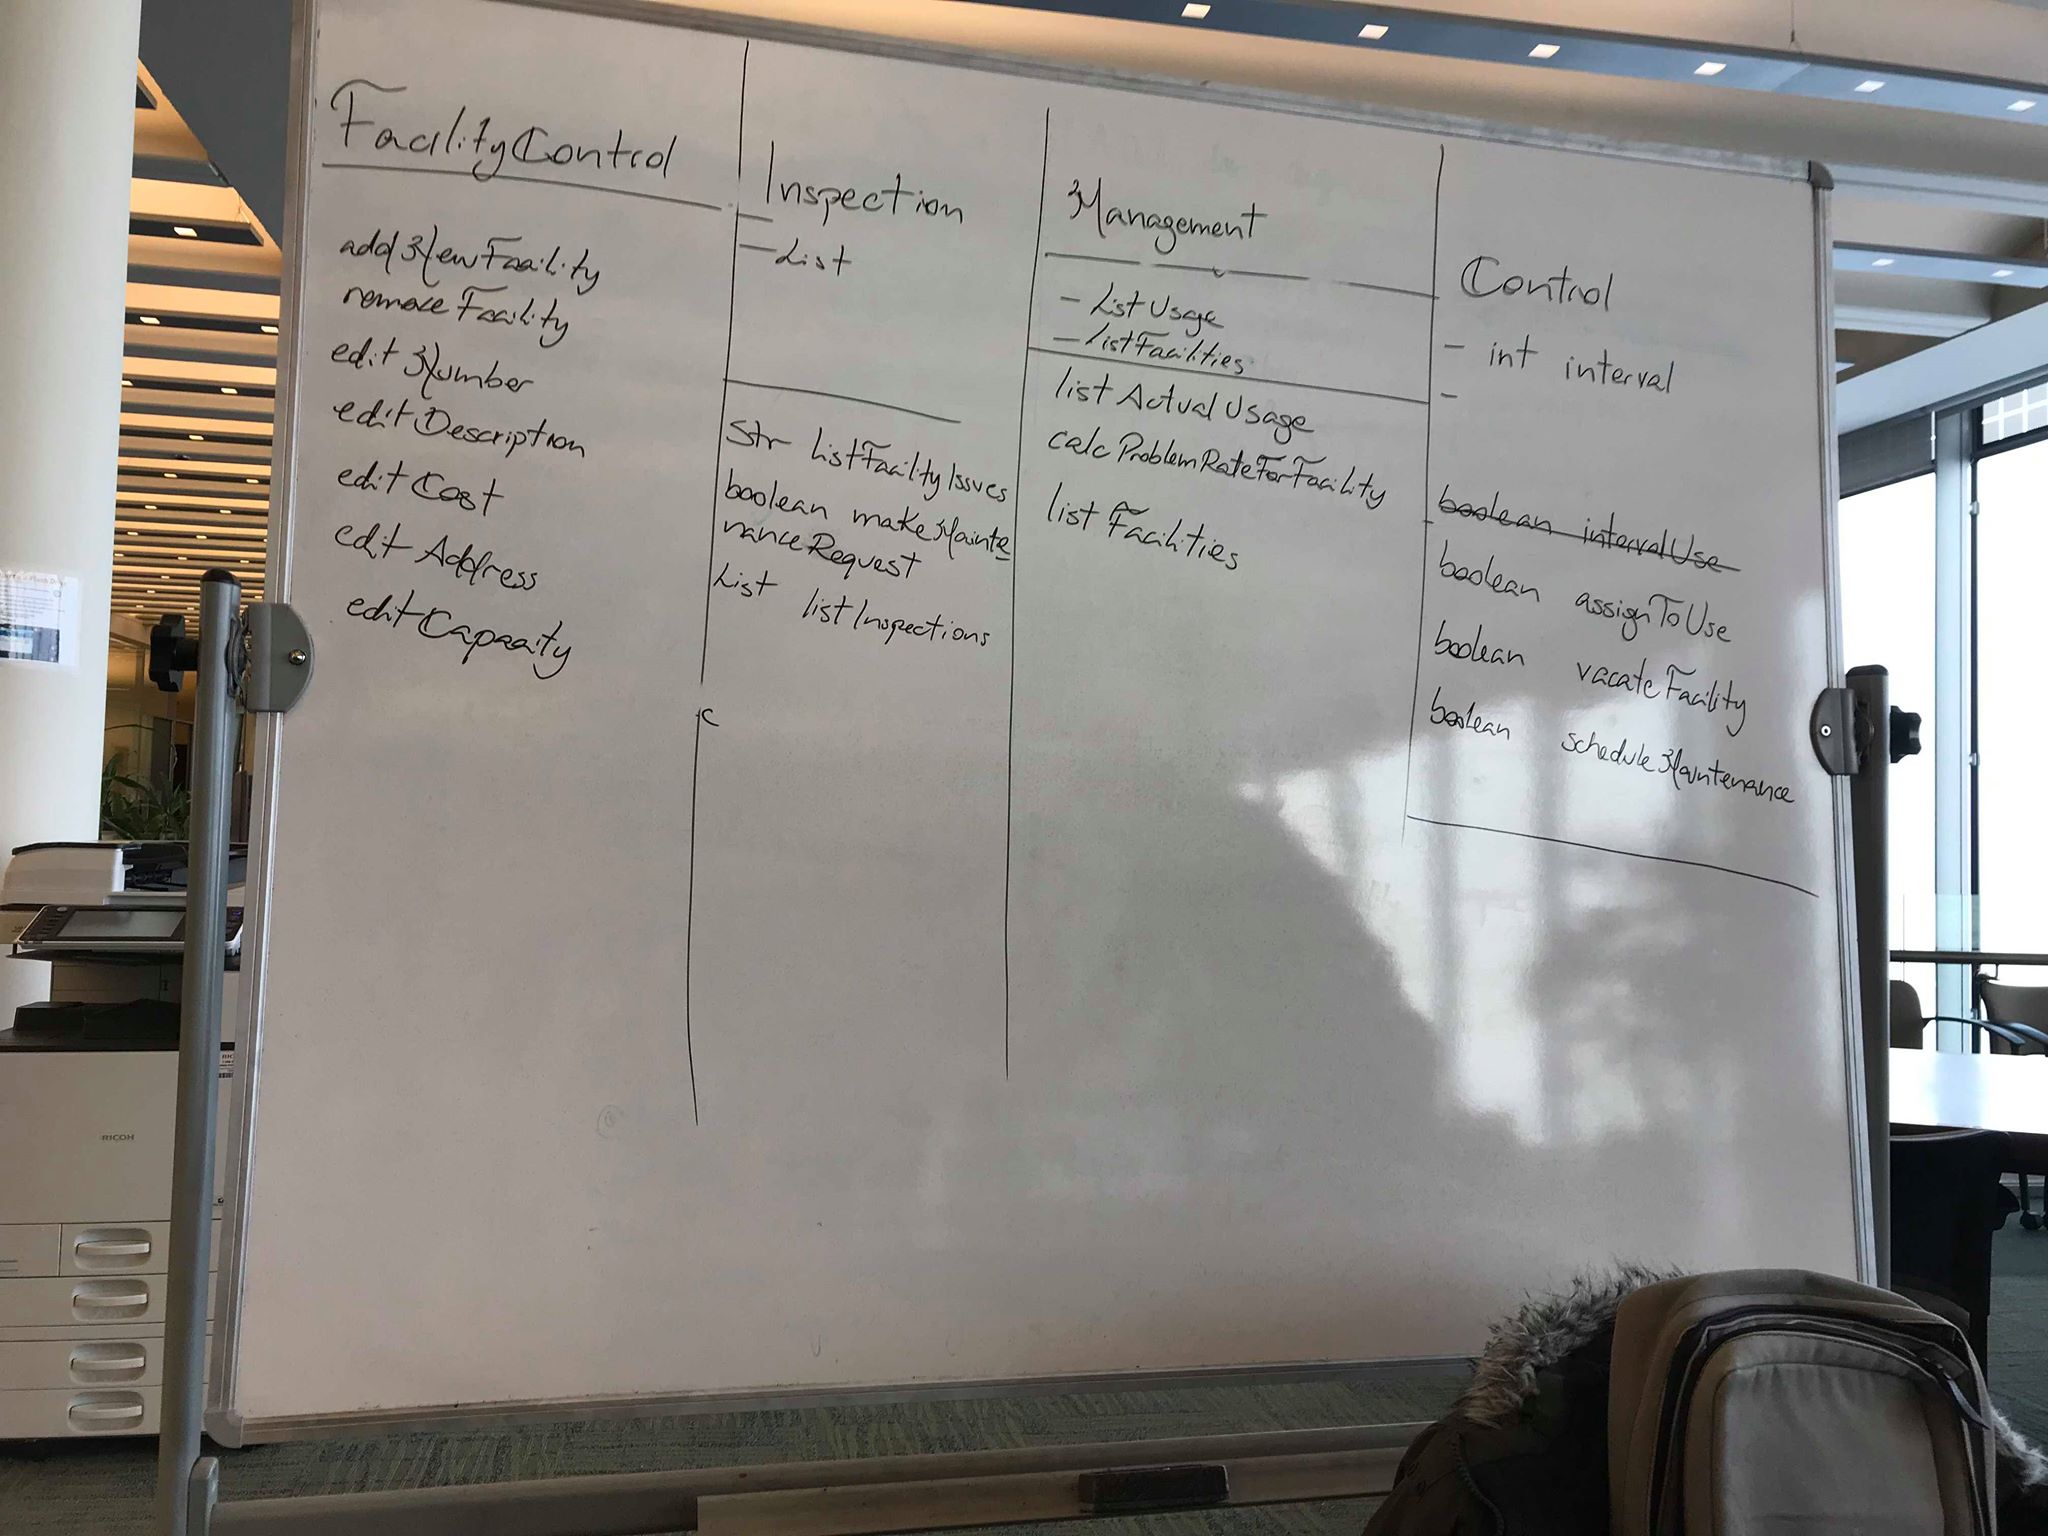 FacilityControl
addNewFacility
removeFacility
editNumber
editDescription
editCost
editAddress
editCapacity
Inspection
- List
Str listFacilityIssues
boolean makeMainte
nanceRequest
List listInspections
c
Management
- ListUsage
- ListFacilities
listActualUsage
calcProblemRateForFacility
listFacilities
Control
- int interval
-
boolean intervalUse
boolean assignToUse
boolean vacateFacility
boolean scheduleMaintenance
RICOH